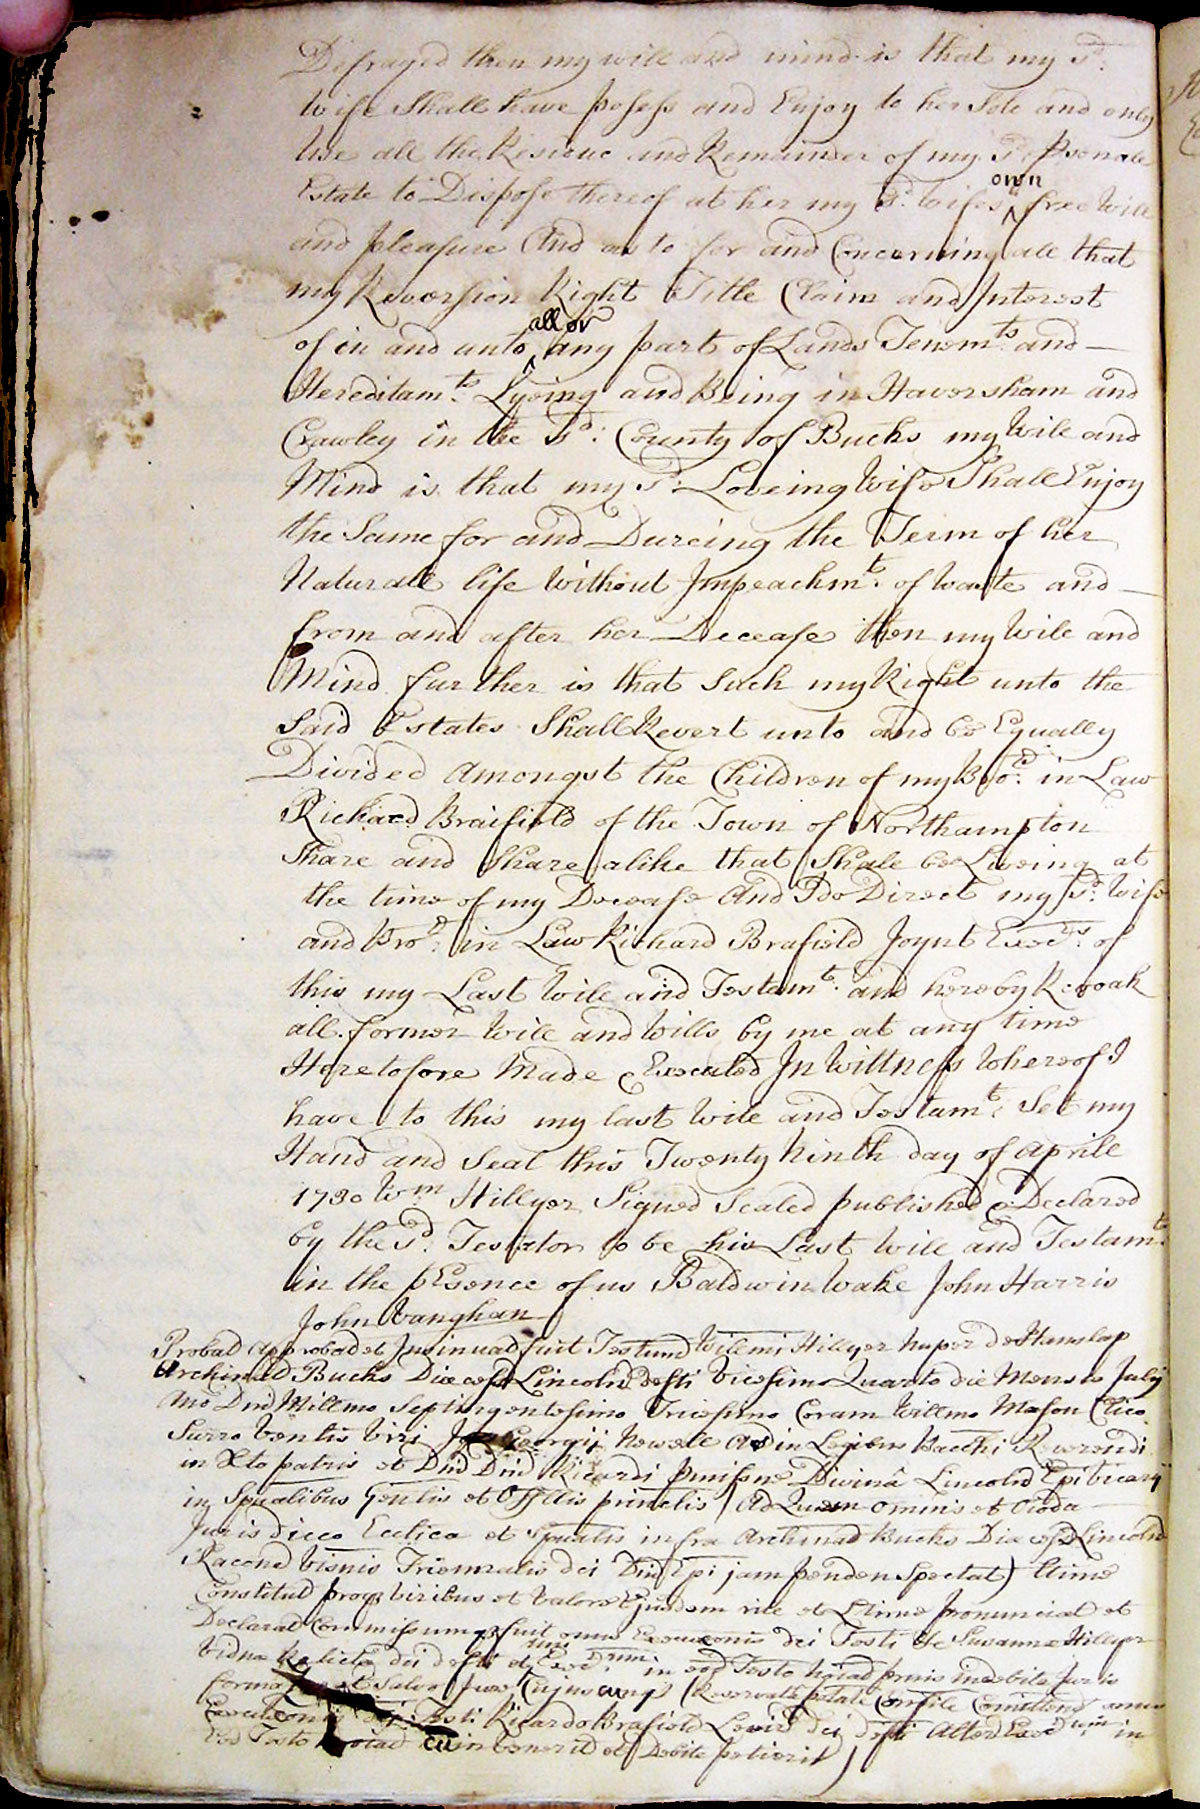 Defrayed then my will and mind is that my sd.
Wife Shall have posess and Enjoy to her Sole and only
Use all the Residue and Remainder of my sd. Psonale
own
Estate to Dispose thereof at her my sd. Wifes ^ free Will
and pleasure And as to for and Concerning all that
my Reversion Right Title Claim and Interest
all or
of in and unto ^ any part of Lands Tenemts. and —
Hereditamts. Lyeing and Being in Haversham and
Crawley in the sd: County of Bucks my Will and
Mind is that my sd. Loveing Wife Shall Enjoy
the Same for and Dureing the Term of her
Naturall life Without Impeachmt. of waste and —
from and after her Decease then my Will and
Mind further is that Such my Right unto the
Said Estates Shall Revert unto and be Equally
Divided Amongst the Children of my Brod. in Law
Richard Braifield of the Town of Northampton
Share and Share alike that Shall be Liveing at
the time of my Decease And I do Direct my sd. Wife
and Brod. in Law Richard Brafield Joynt Execrs. of
this my Last Will and Testamt. and hereby Revoak
all former Will and Wills by me at any time
Heretofore Made Executed In Wittness Whereof I
have to this my last Will and Testamt. Set my
Hand and Seal this Twenty Ninth day of Aprill
1730 Wm Hillyer Signed Sealed published & Declared
by the sd. Testator to be his Last Will and Testamt.
in the pEsence of us Baldwin Wake John Harris
John Vaughan
Probad Approbad et Insinuad fuit Testum Willmi Hillyer nuper de Hanslap
Archinad Bucks Dioces Lincoln defti Vicesimo Quarto die Mensis July
Ano Dni Millmo Septingentesimo Tricesimo Coram Willmo Mason Clico
Surro Ventis Viri Georgij Newell in Legibus Bacchi Reverendi
in Xto patris et Dni Dni Ricardi pmissne Divina Lincoln Epi Vicarij
in Spualibus Genlis et Offlis prinlis (Ad Quem omnis et Oioda
Jurisdicco Ecclica et Spualis infra Archinad Bucks Dioces Lincoln
Racone Trienualis dci Dni Epi jam penden Spectat) ltime
Constitud proq viribus et valore Ejusdem rite et Ltime pronunciat et
Declarad Commissumq fuit onus Execuconis dci Testi Susanne Hillyer
Vidue Relicte dci defti et Execrum in eod Testo noiad prius in debita Juris
forma Salvo Jure Cujuscunq (Reservata ptate Consile Comittend onus
Execuconis Testi Ricardo Brafield Leviro dci defti Altero Execrum in
Eod Testo noiad cu in venerit et Debite petierit)